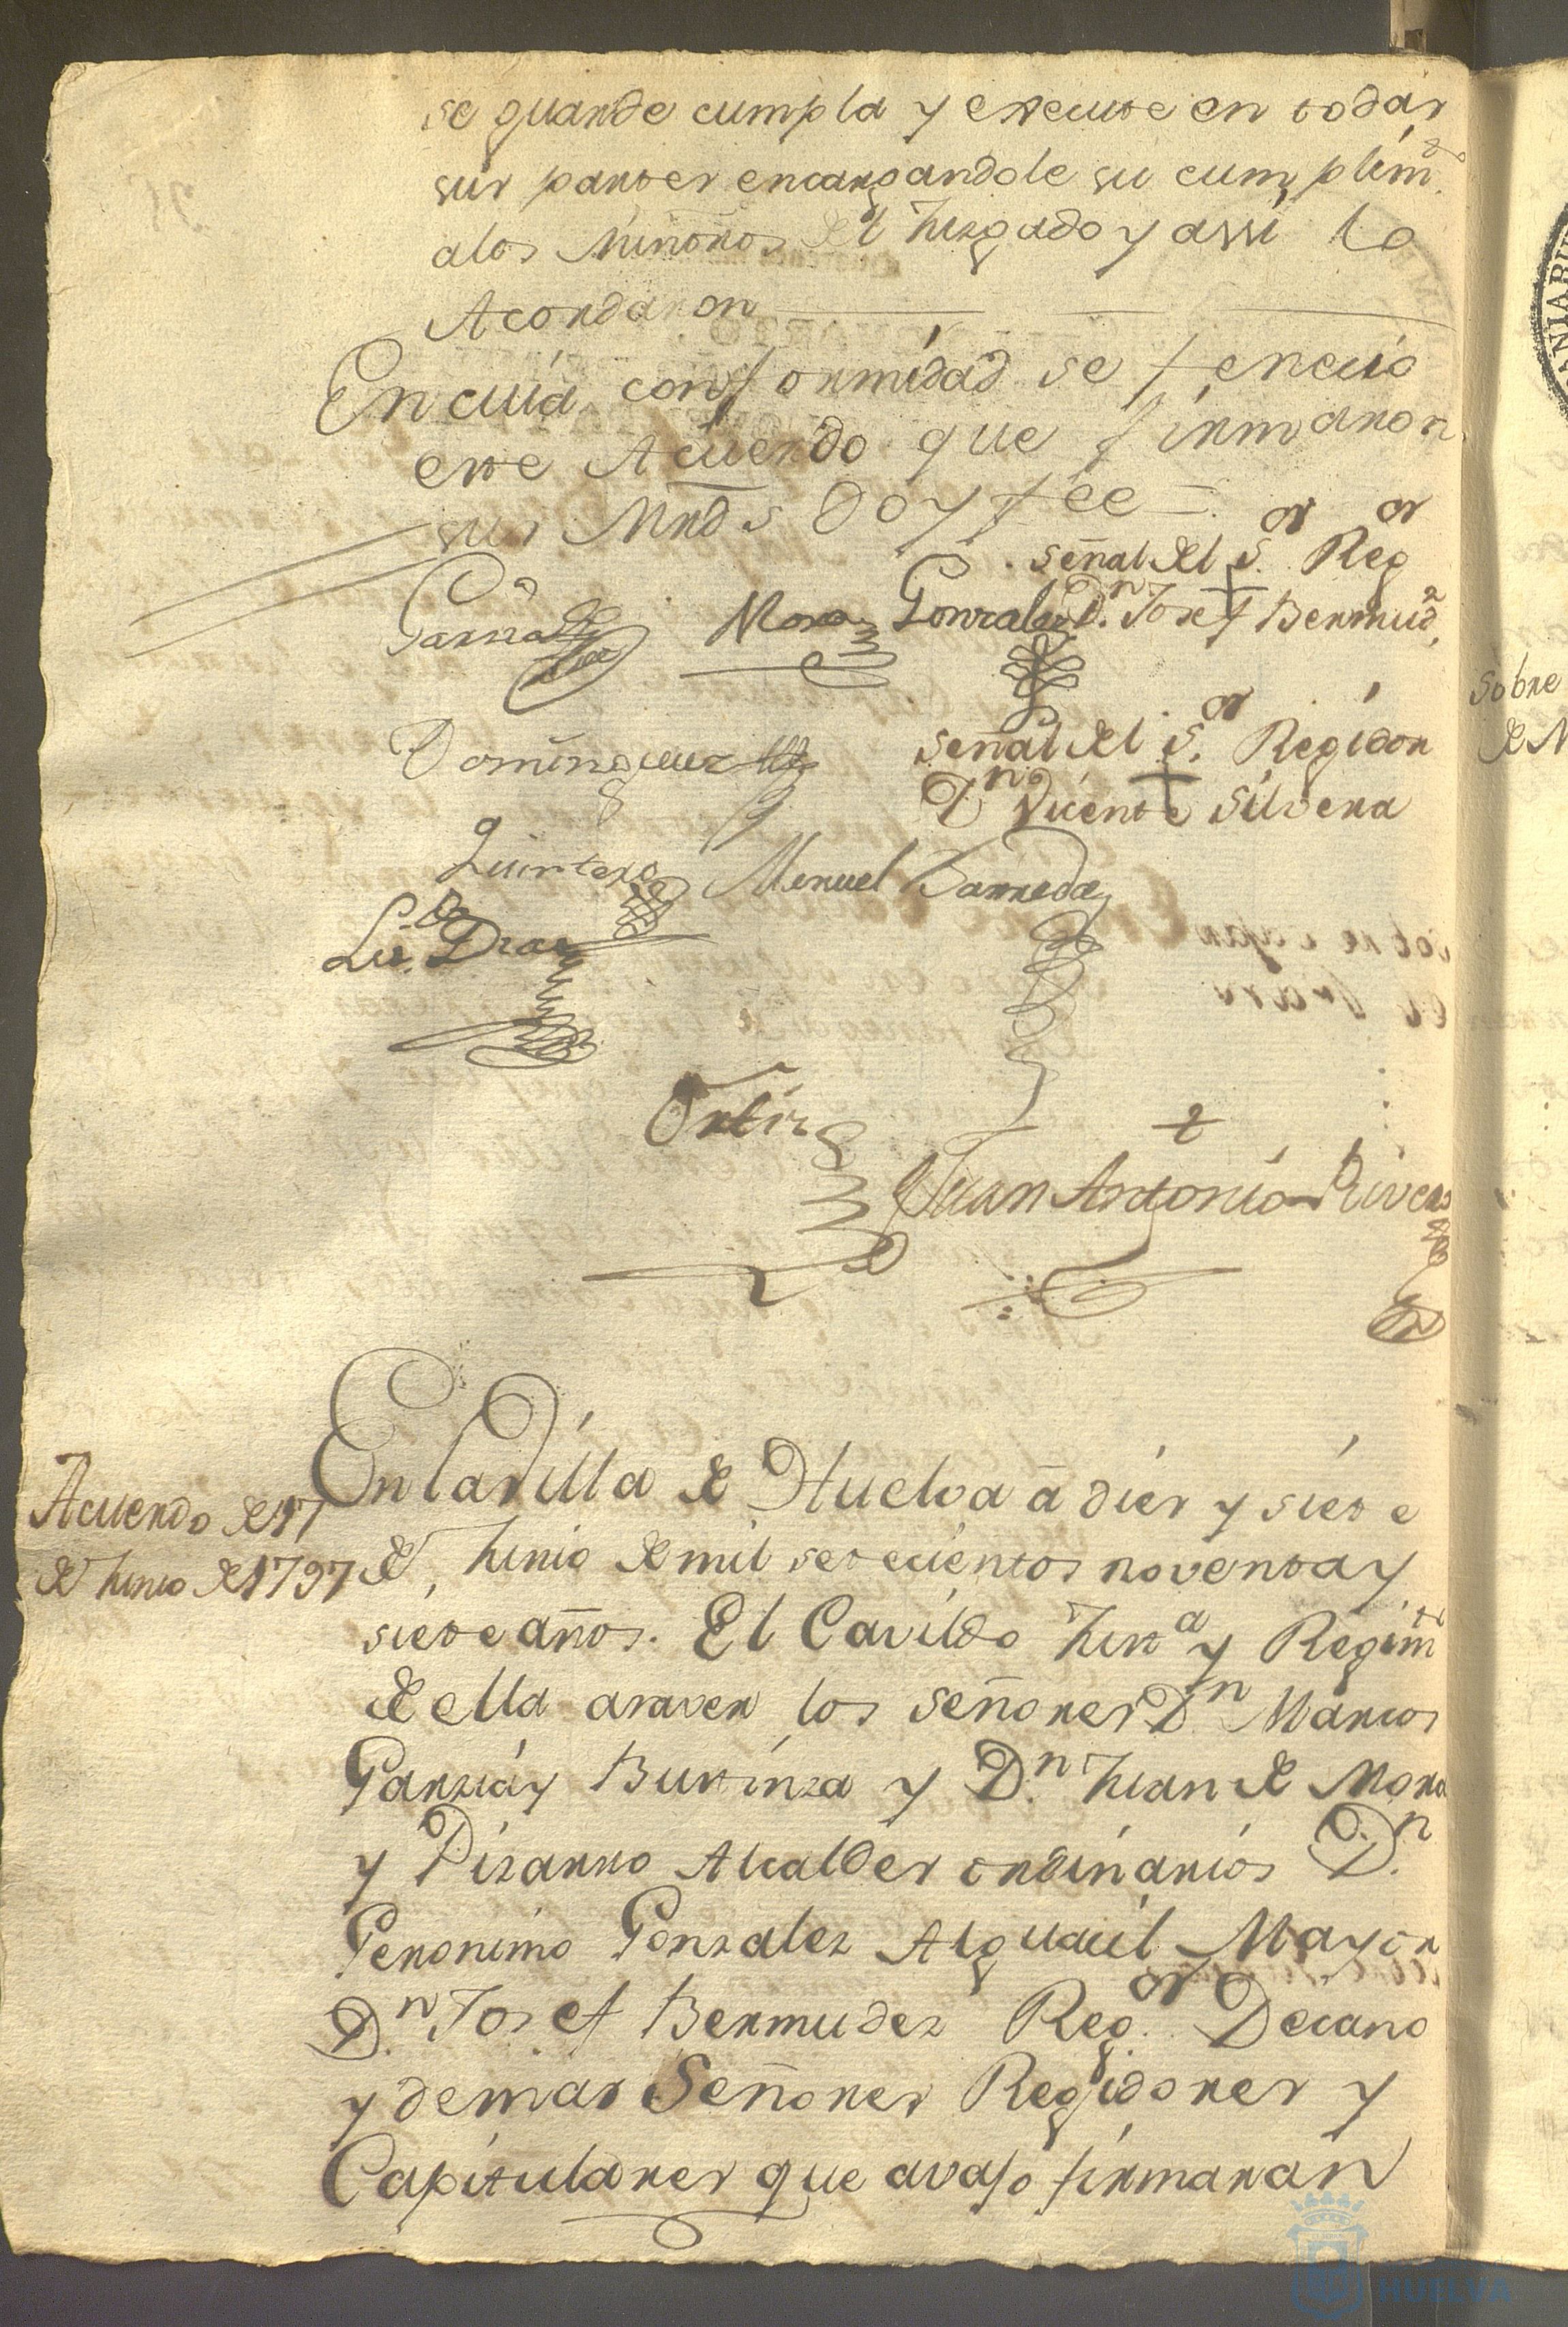 se guarde cumpla y execute en todas
sus partes encargandole su cumplim.to
a los Ministros del Juzgado y assi lo
Acordaron
En cuia conformidad se fenecio
este Acuerdo que firmaron
sus Mrds Doy fee =
Garzia Mora Gonzalez
señal del S.or Reg.or
D.n Josef + Bermud.z
Dominguez
señal del S.or Regidor
D.n Vicente + Silvera
Quintero Manuel Barreda
L.do Diaz
Ortiz
Juan Antonio Rivera
Acuerdo de 17
de Junio de 1797
En la Villa de Huelva â dies y siete
de Junio de mil setecientos noventa y
siete años. El Cavildo Just.a y Regim.to
de ella asaver los señores D.n Marcos
Garzia y Bustinza y D.n Juan de Mora
y Pizarro Alcaldes ordinarios D.n
Geronimo Gonzalez Alguacil Mayor
D.n Josef Bermudez Reg.or Decano
y demas Señores Regidores y
Capitulares que avajo firmaran
Sobre
de
HUELVA